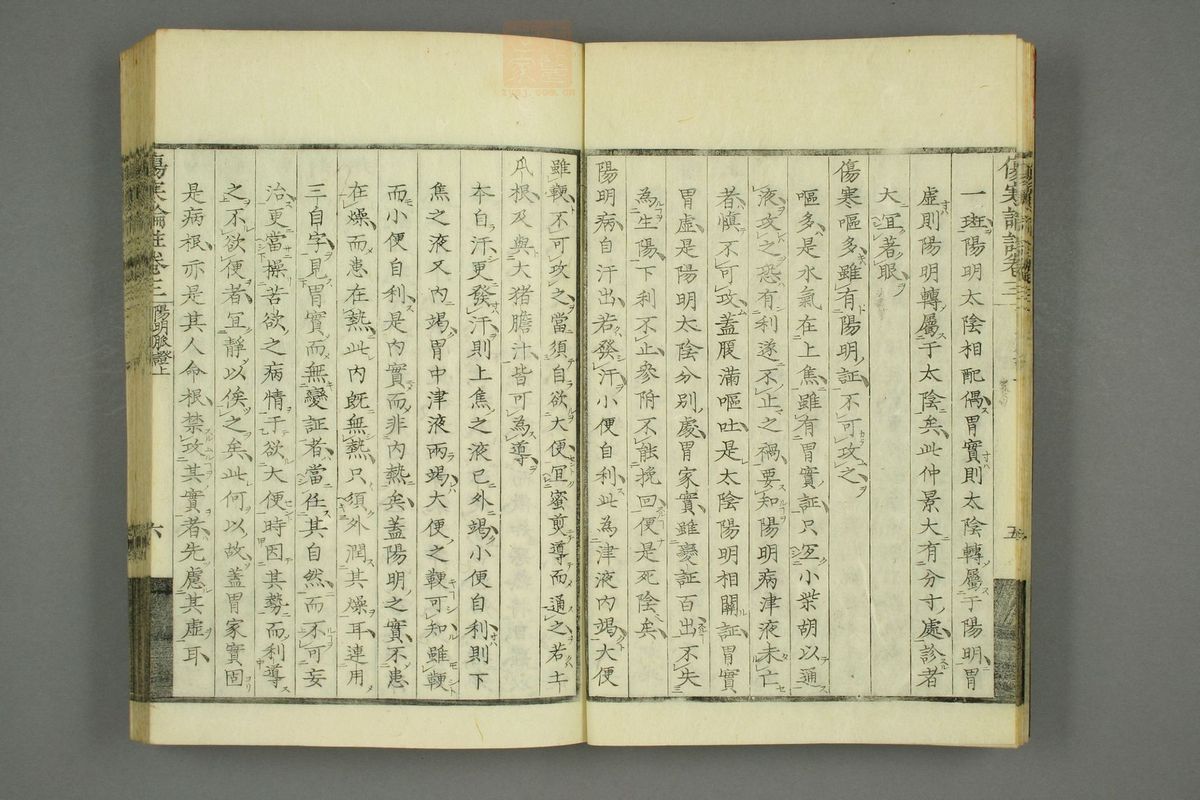 一斑陽明太陰相配偶胃實則太陰轉屬于陽明胃
虛則陽明轉屬于太陰矣此仲景大有分寸處診者
大宜著眼
傷寒嘔多雖有陽明証不可攻之
嘔多是水氣在上焦雖有胃實証只宜小柴胡以通
液攻之恐有利遂不止之禍要知陽明病津液未亡
者慎不可攻蓋腹滿嘔吐是太陰陽明相關証胃實
胃虛是陽明太陰分別處胃家實雖變証百出不失
為生陽下利不止參附不能挽回便是死陰矣
陽明病自汗出若發汗小便自利此為津液內竭大便
雖鞕不可攻之當須自欲大便宜蜜煎導而通之若土
瓜根及與大猪膽汁皆可為導
本自汗更發汗則上焦之液已外竭小便自利則下
焦之液又內竭胃中津液兩竭大便之鞕可知雖鞕
而小便自利是內實而非內熱矣蓋陽明之實不患
在燥而患在熱此內既無熱只須外潤其燥耳連用
三自字見胃實而無變証者當任其自然而不可妄
治更當探苦欲之病情于欲大便時因其勢而利導
之不欲便者宜靜以俟之矣此何以故蓋胃家實固
是病根亦是其人命根禁攻其實者先慮其虛耳
傷寒論註卷三
陽明脈證上
六
傷寒論註卷三
五